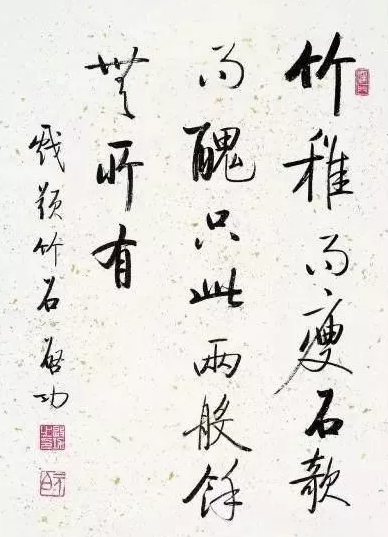 竹稚而瘦石欹
而醜只此兩般餘
無所有
戲題竹石 啓功
元白